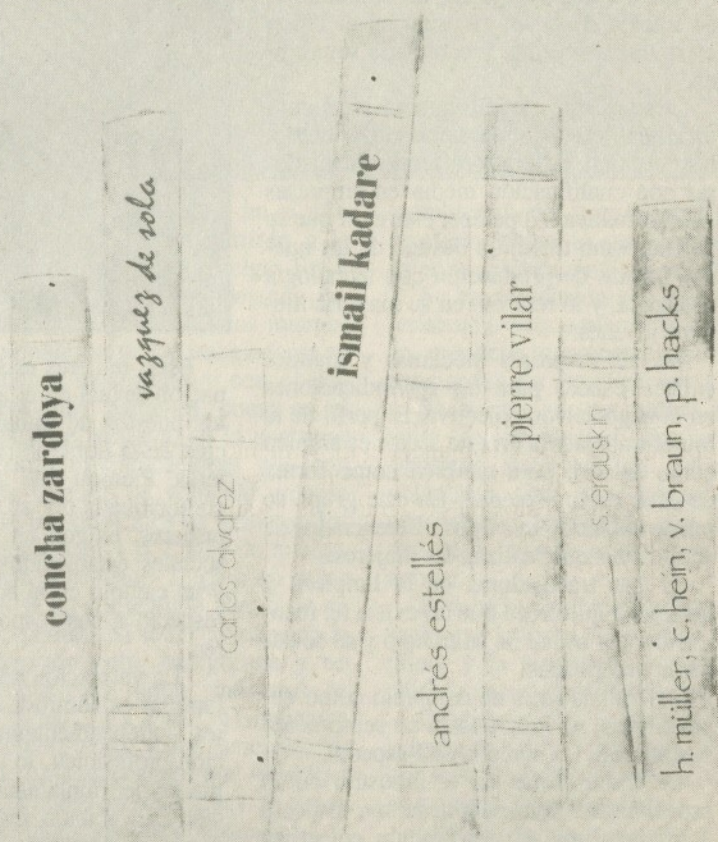 concha zardoya
vazquez de sola
carlos alvarez
ismail kadare
andrés estellés
pierre vilar
s. erauskin
h. müller, c. hein, v. braun, p. hacks